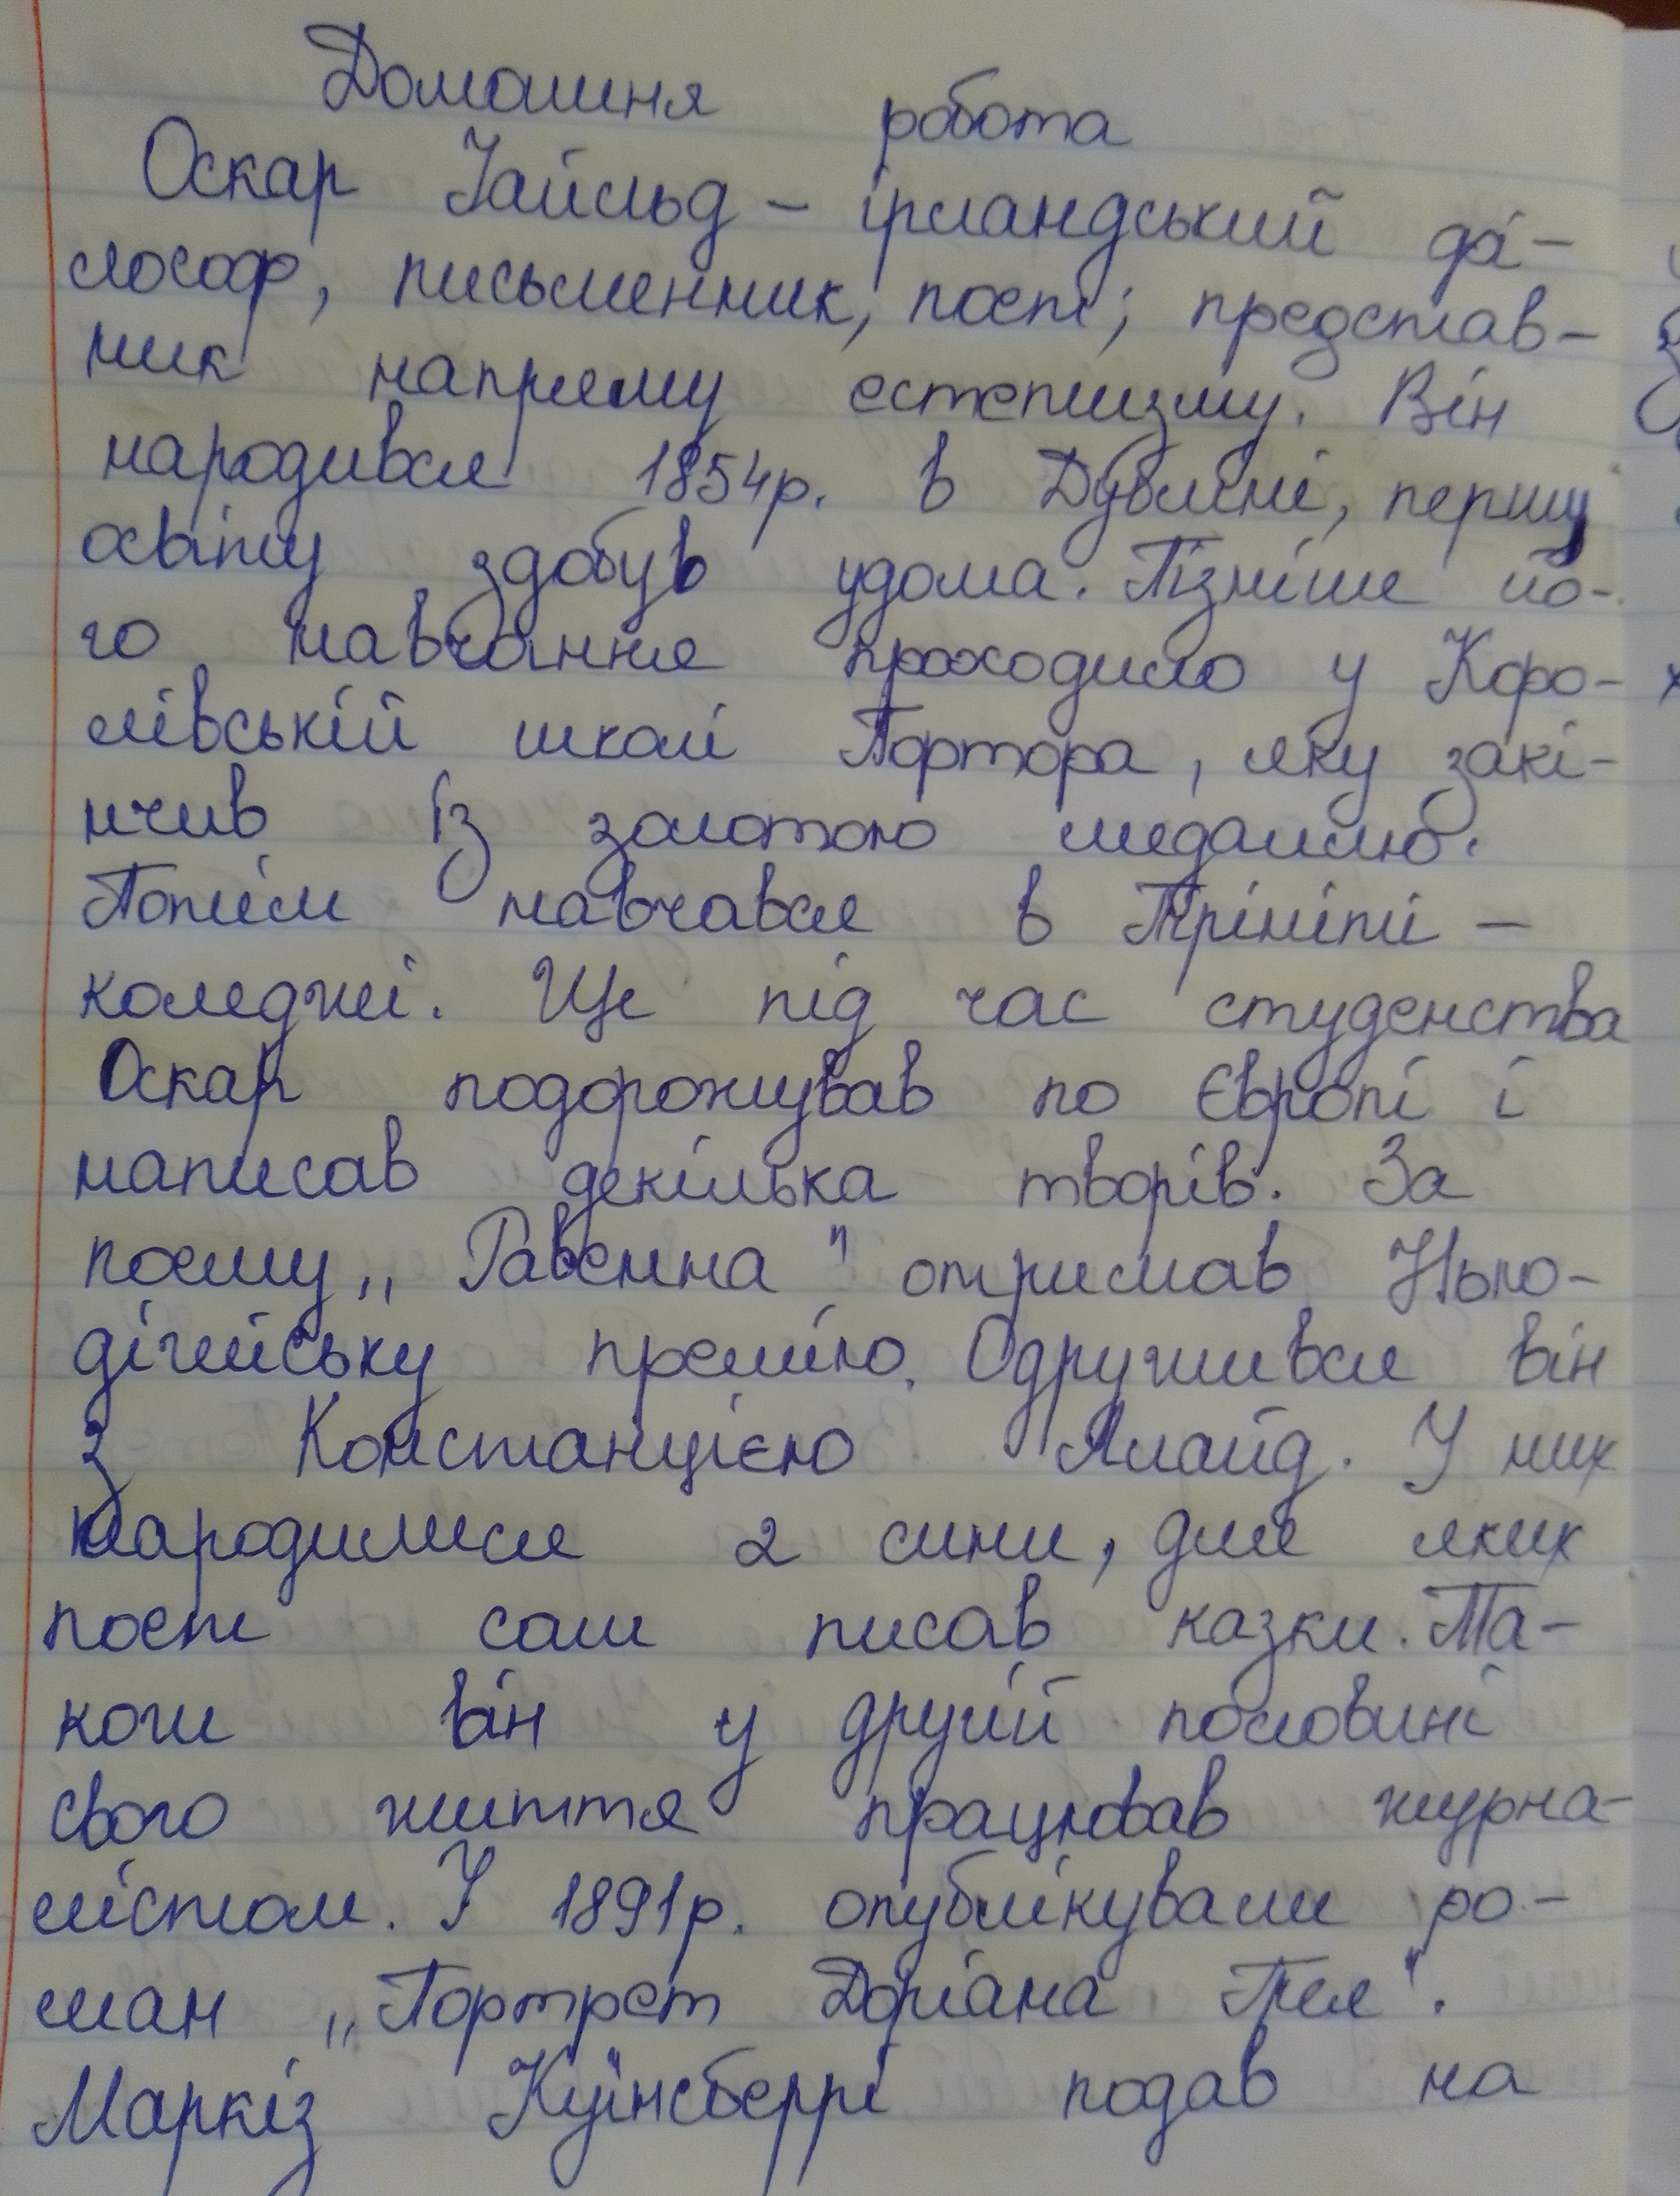 Домашня робота
Оскар Уайльд – ірландський фі-
лософ, письменник, поет; представ-
ник напряму естетизму. Він
народився 1854р. в Дубліні, першу
освіту здобув удома. Пізніше йо-
го навчання проходило у Коро-
лівській школі Портора, яку закі-
нчив із золотою медаллю.
Потім навчався в Трініті –
коледжі. Ще під час студенства
Оскар подорожував по Європі і
написав декілька творів. За
поему „Равенна" отримав Нью-
дігейську премію. Одружився він
з Констанцією Ллойд. У них
народилися 2 сини, для яких
поет сам писав казки. Та-
кож він у другій половині
свого життя працював журна-
лістом. У 1891р. опублікували ро-
ман „Портрет Доріана Грея".
Маркіз Куїнсберрі подав на